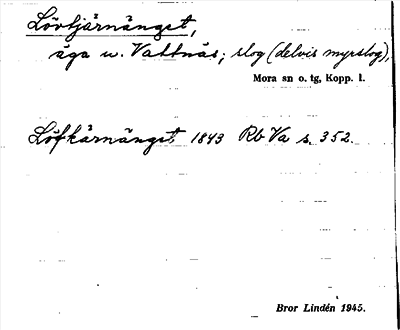 Lövtjärnänget,
äga u. Vattnäs; slog (delvis myrslog),
Mora sn o. tg, Kopp. l.
Löfkärnänget 1843 Rb Va s. 352.
Bror Lindén 1945.